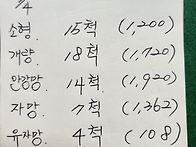 9/4
소형. 15척 (1,200)
개량. 18척 (1,720)
안강망. 14척 (1,920)
자망. 7척 (1,362)
유자망. 4척 (108)